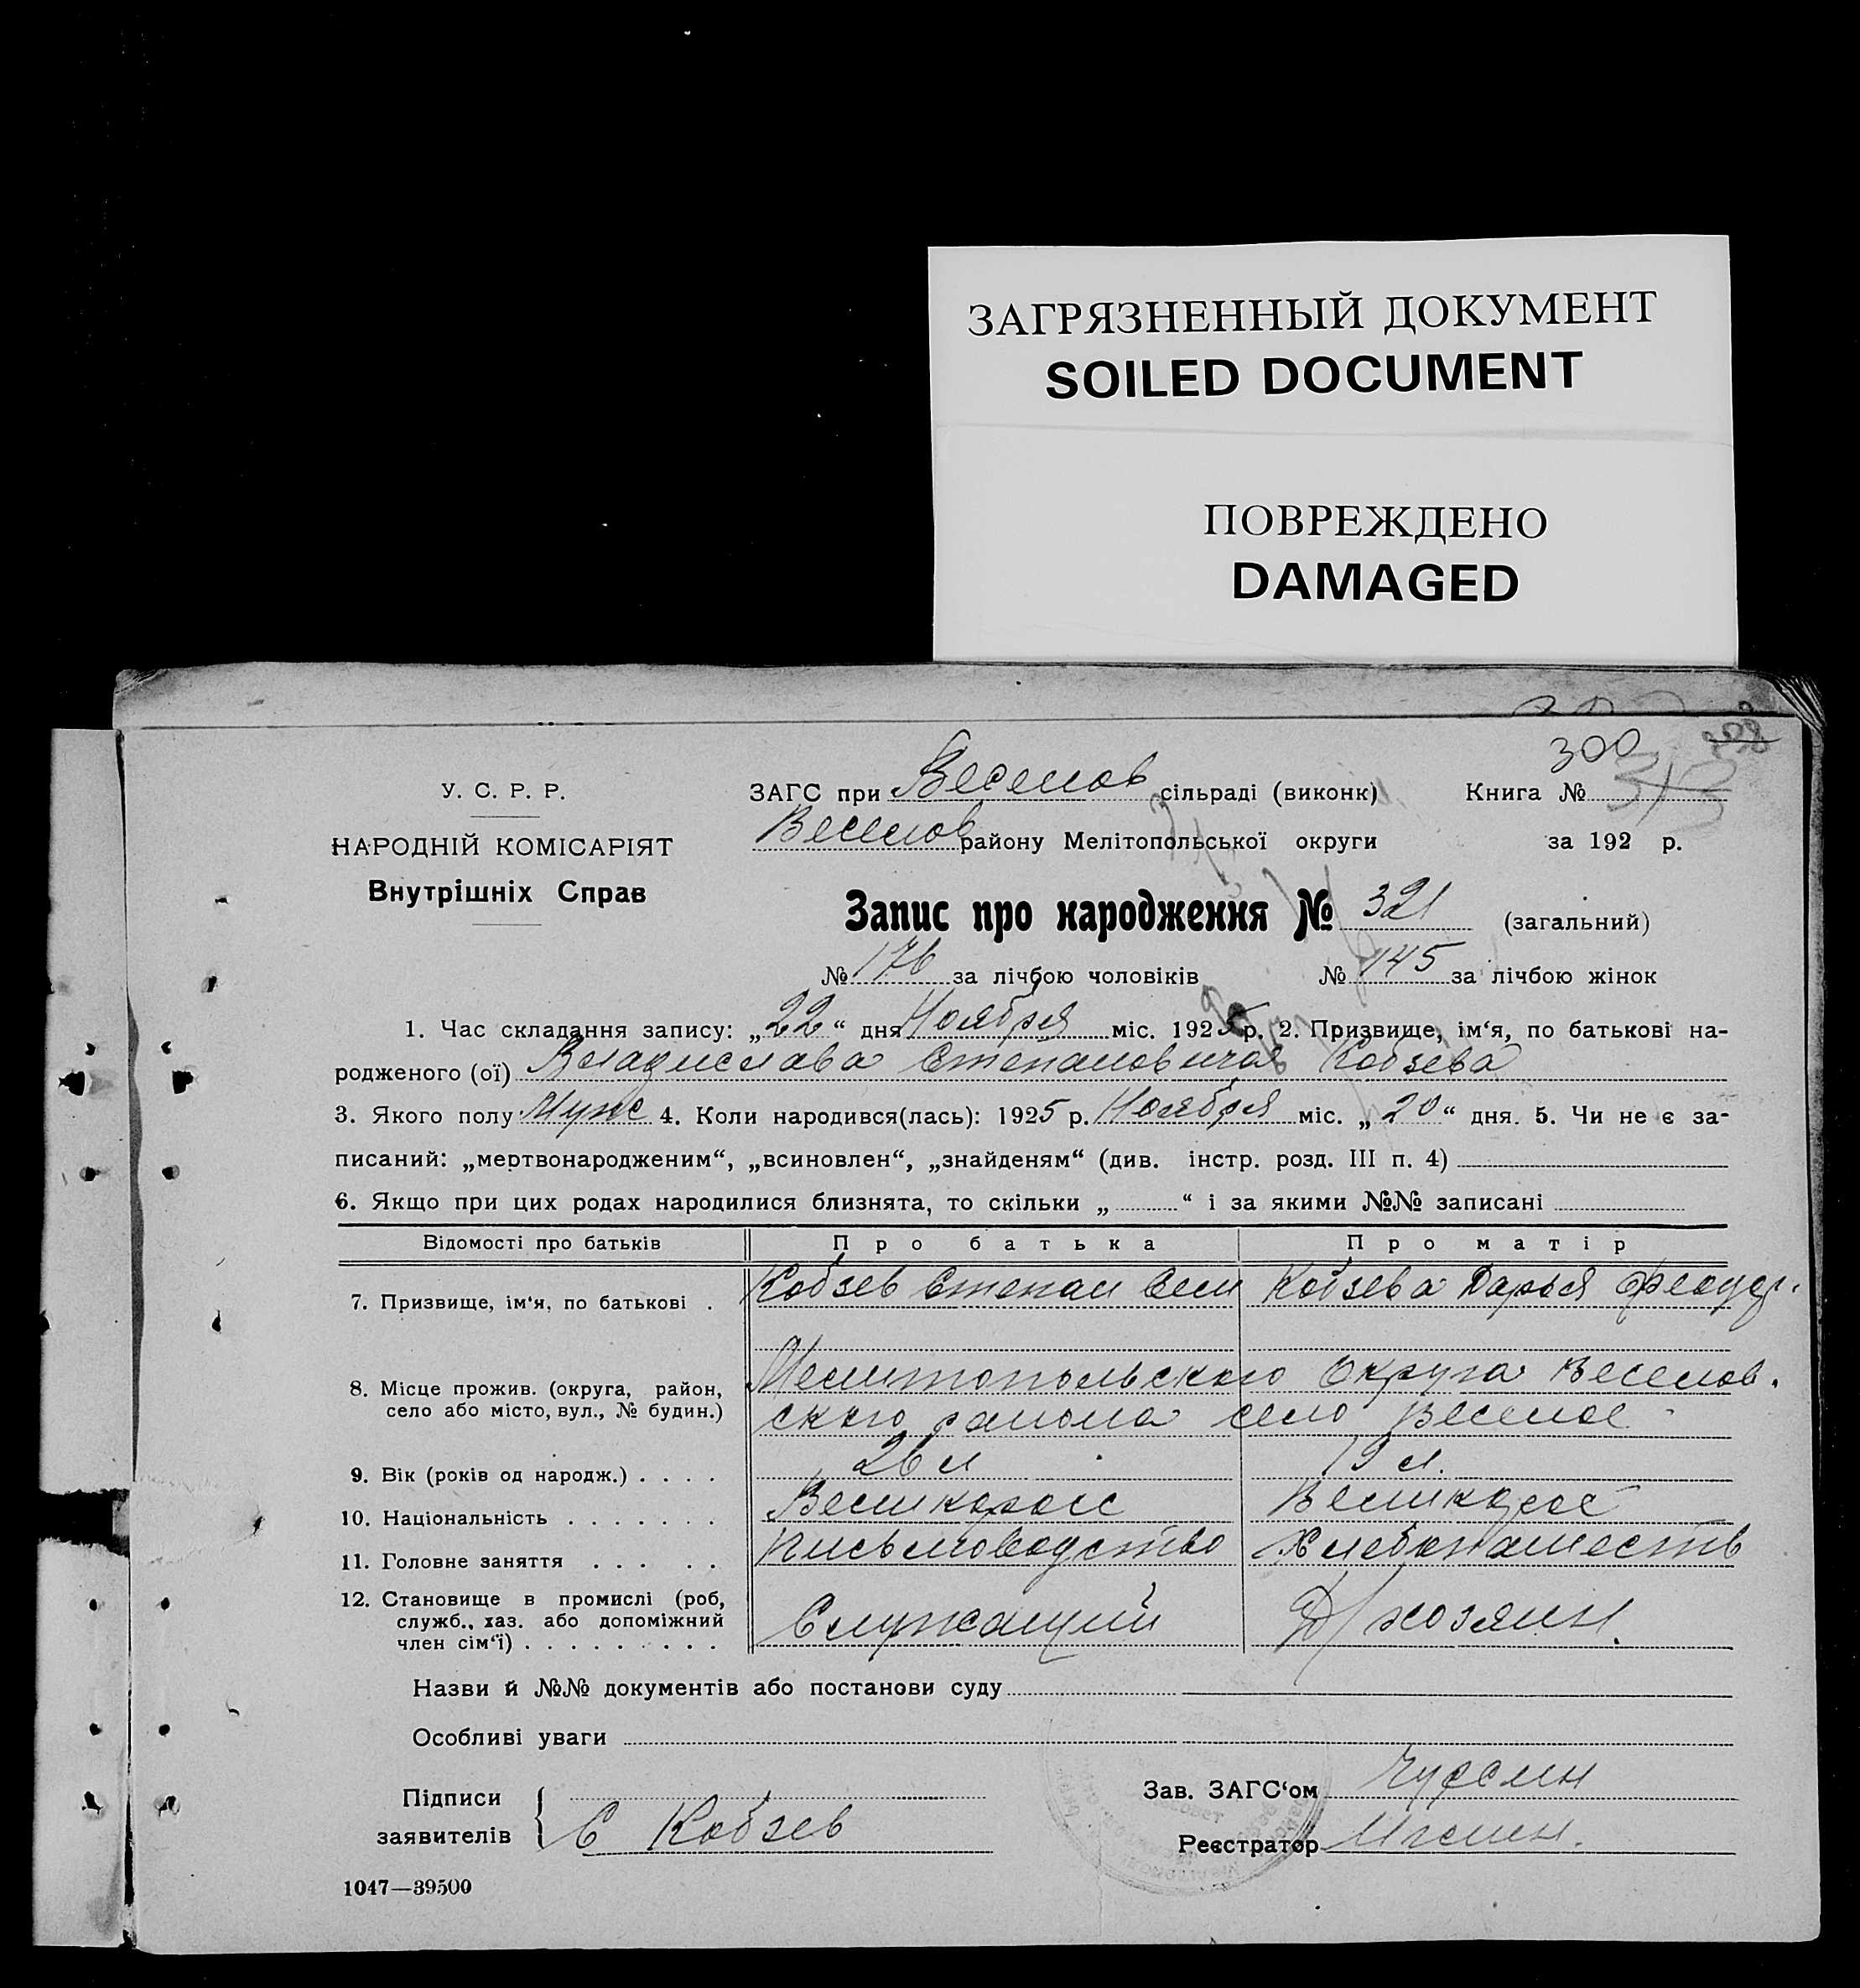 ЗАГРЯЗНЕННЫЙ ДОКУМЕНТ
SOILED DOCUMENT
ПОВРЕЖДЕНО
DAMAGED
300
У. С. Р. Р.
НАРОДНІЙ КОМІСАРІЯТ
Внутрішніх Справ
ЗАГС при Веселов сільраді (виконк) Книга № 313
Веселов району Мелітопольської округи за 192 р.
Запис про народження № 321 (загальний)
№ 176 за лічбою чоловіків № 145 за лічбою жінок
1. Час складання запису: „22“ дня Ноября міс. 1925 р. 2. Призвище, ім‘я, по батькові на-
родженого (ої) Владислава Степановича Кобзева
3. Якого полу Мужс 4. Коли народився(лась): 1925 р. Ноября міс. „20“ дня. 5. Чи не є за-
писаний: „мертвонародженим“, „всиновлен“, „знайденям“ (див. інстр. розд. III п. 4)
6. Якщо при цих родах народилися близнята, то скільки „ “ і за якими №№ записані
Відомості про батьків Про батька Про матір
7. Призвище, ім‘я, по батькові . Кобзев Степан Сем Кобзева Дарья Феодор.
8. Місце прожив. (округа, район, село або місто, вул., № будин.) Мелитопольского Округа Веселов.
ского района село Веселое
9. Вік (років од народж.) . . . . 26 л 19 л.
10. Національність . . . . . . . Великоросс Великорос
11. Головне заняття . . . . . Письмоводство Хлебопашеств
12. Становище в промислі (роб, служб., хаз. або допоміжний член сім‘ї) . . . . . . . . . Служащий Д/хозяин.
Назви й №№ документів або постанови суду
Особливі уваги
Підписи
заявителів С Кобзев
Зав. ЗАГС‘ом
Реєстратор
1047—39500